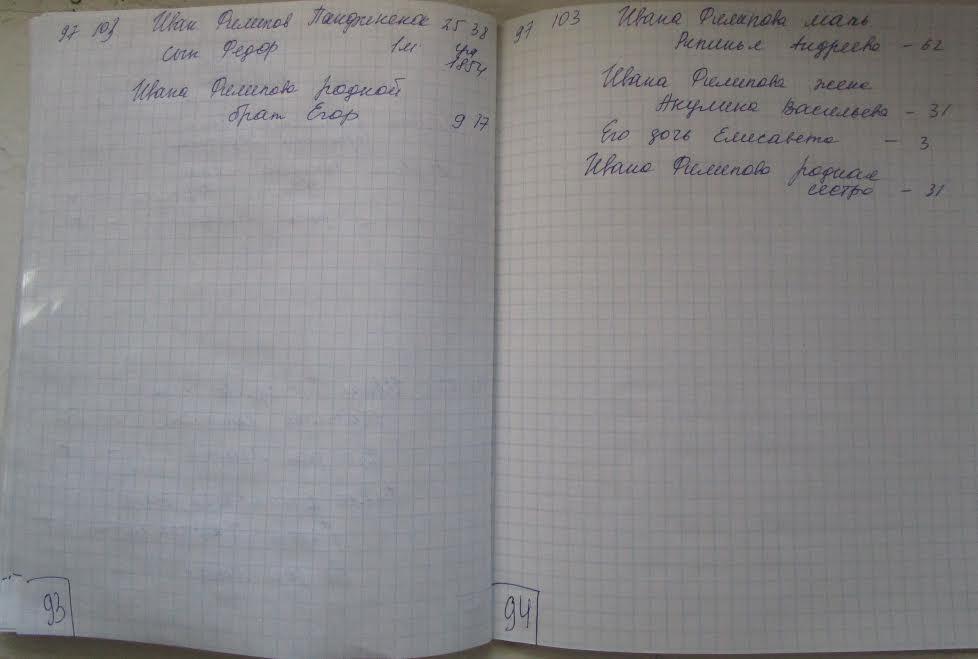 97 103 Иван Филипов 25 38
сын Федор 1м. ум 1854
Ивана Филипова родной
брат Егор 9 17
93
97 103 Ивана Филипова мать
Андреева – 62
Ивана Филипова жена
Акулина Васильева – 31
Его дочь Елисавета – 3
Ивана Филипова родная
сестра – 31
94